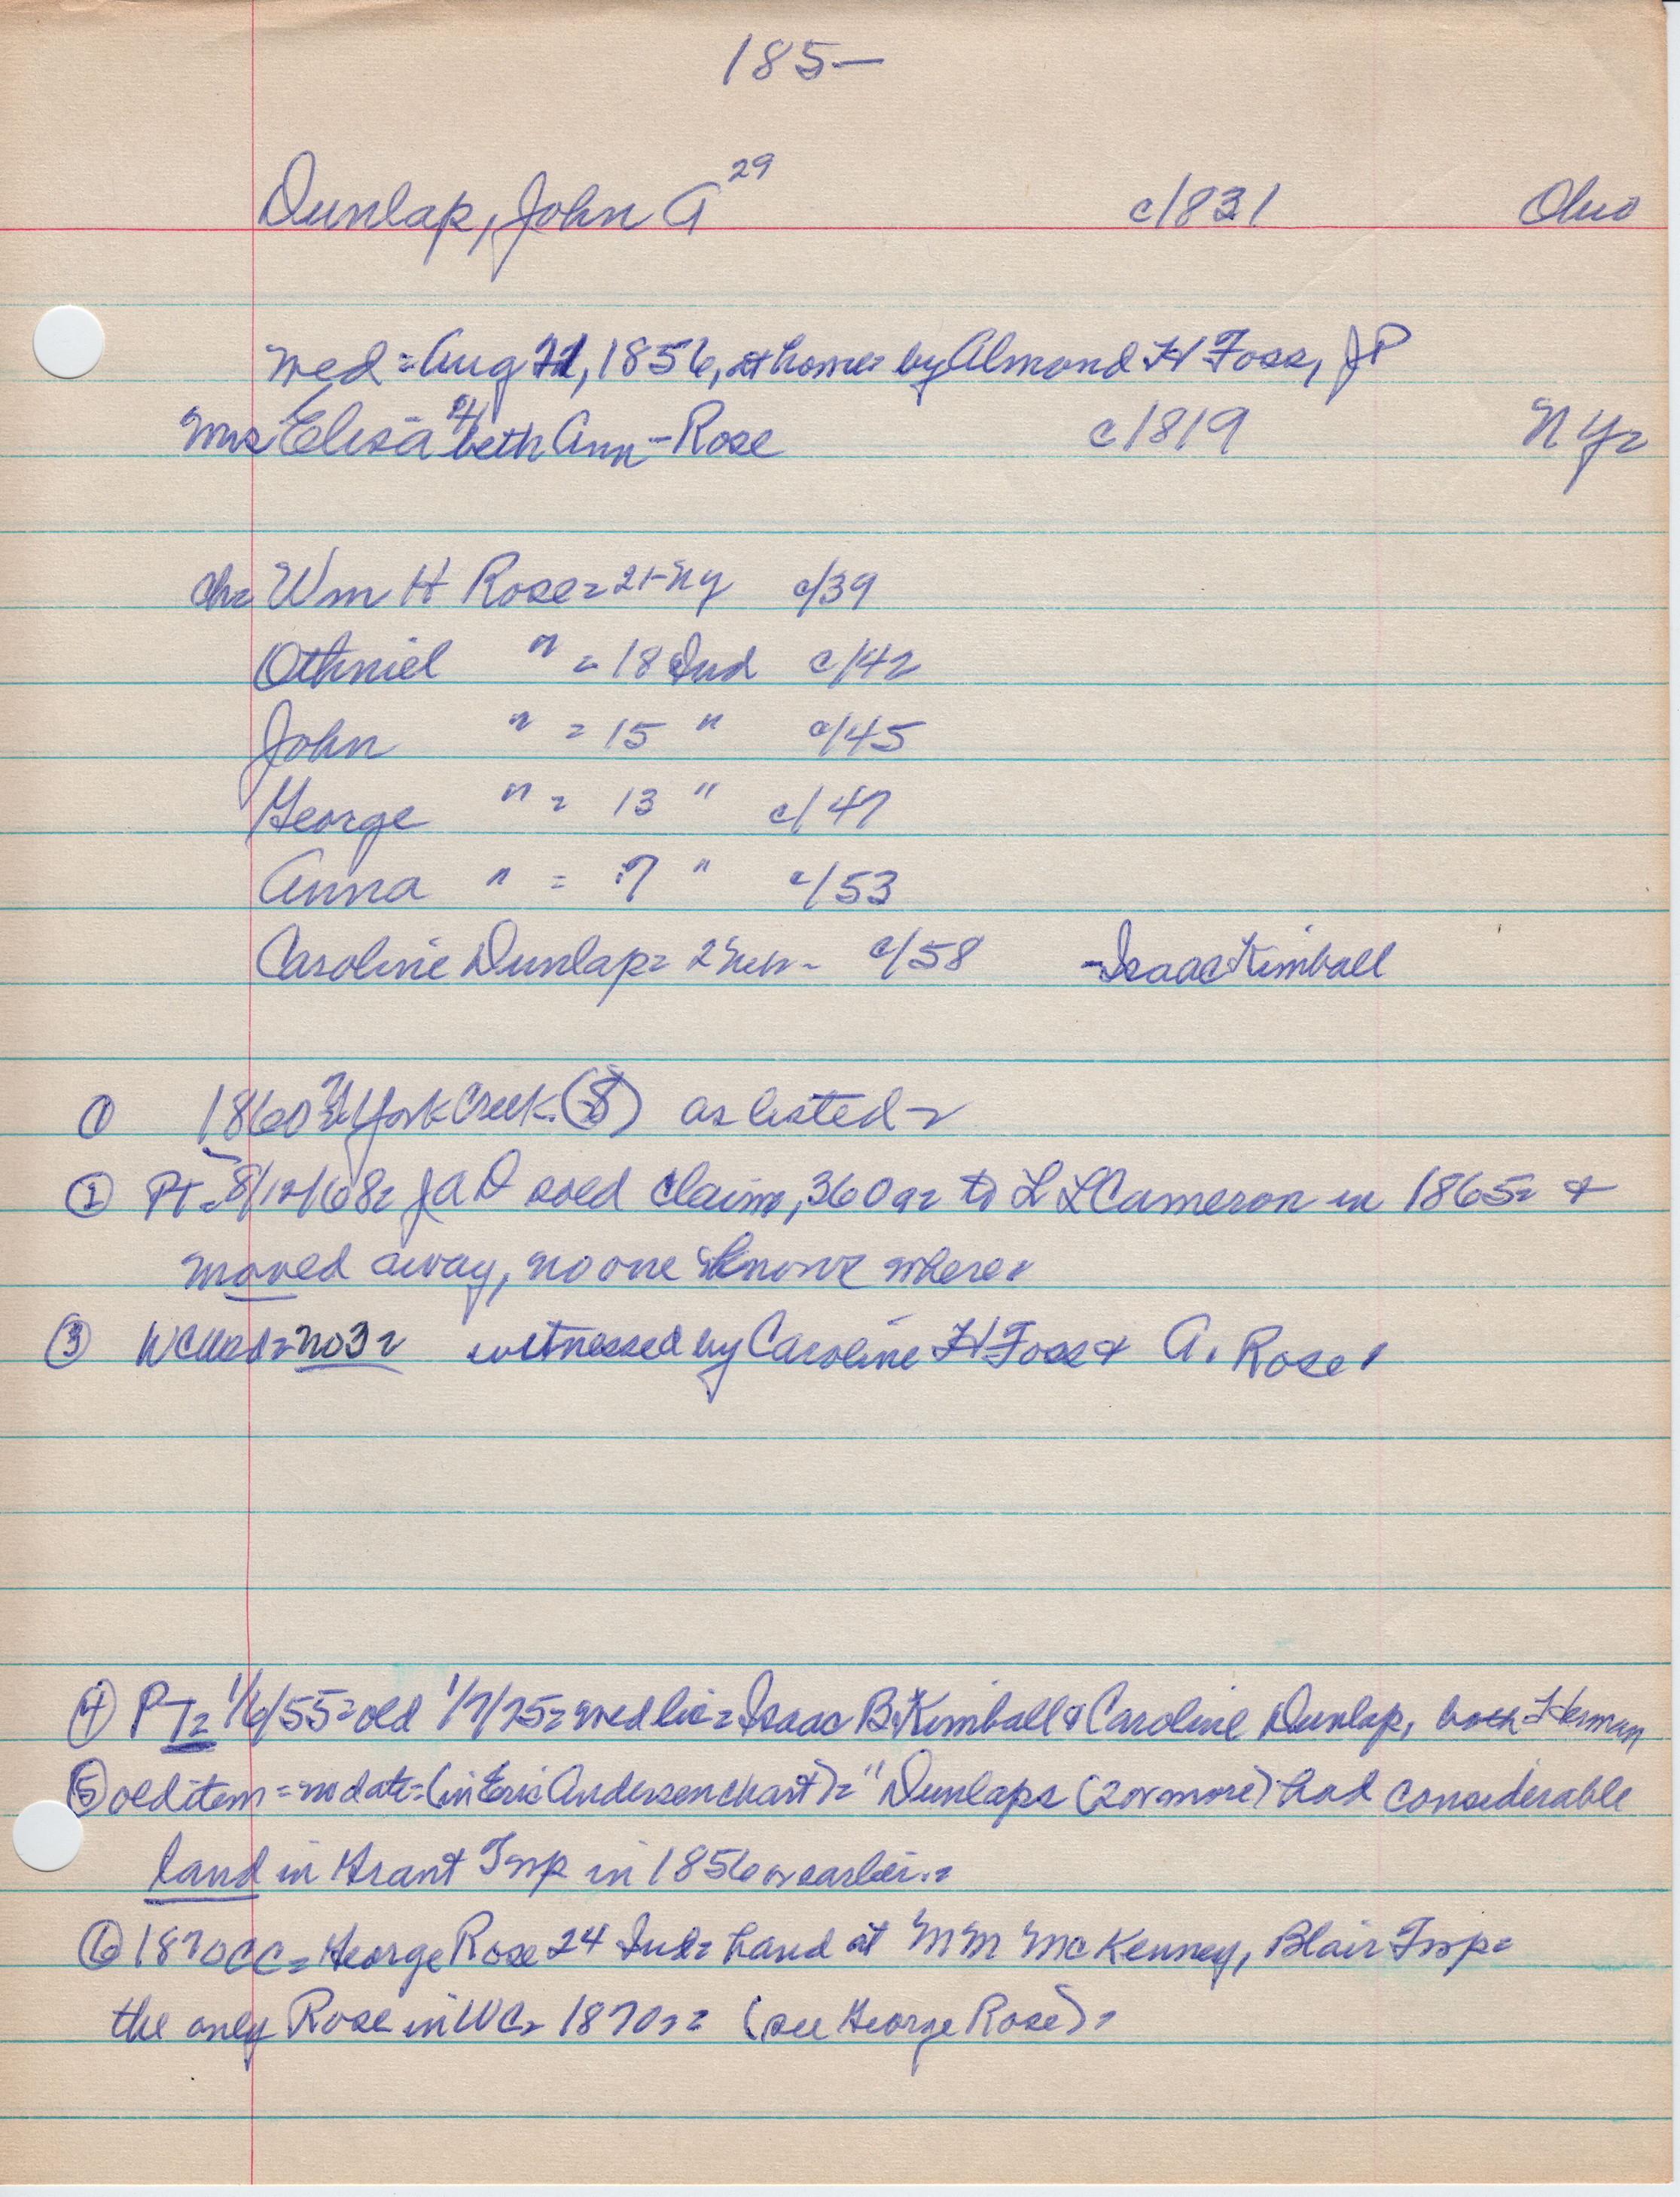 185—
Dunlap, John A 29 c/1831 Ohio
Wed = Aug 1856, at home by Almond H Foss, JP
Mrs Elisabeth Ann - Rose 41 c/1819 N Y=
Ch= Wm H Rose = 21 - NY c/39
Othniel " = 18 Ind c/42
John " = 15 " c/45
George " = 13 " c/47
Anna " = 7 " c/53
Caroline Dunlap = 2 c/58 - Isaac Kimball
① 1860 York Creek (8) as listed =
② PT = 8/12/68 = JAD sold claim, 360 a= to L L Cameron in 1865 = &
moved away, no one knows where.
③ = no 3 = witnessed by Caroline H Foss & A. Rose.
④ PT = 1/6/55 = old 1/7/75 = wed lic = Isaac B Kimball & Caroline Dunlap, both Herman
⑤ old item = no date = (in Eric Andersen chart) = "Dunlaps (2 or more) had considerable
land in Grant Twp in 1856 or earlier. =
⑥ 1870 CC = George Rose 24 Ind = hand at M M McKenney, Blair Twp =
the only Rose in WC = 1870 = (see George Rose) =